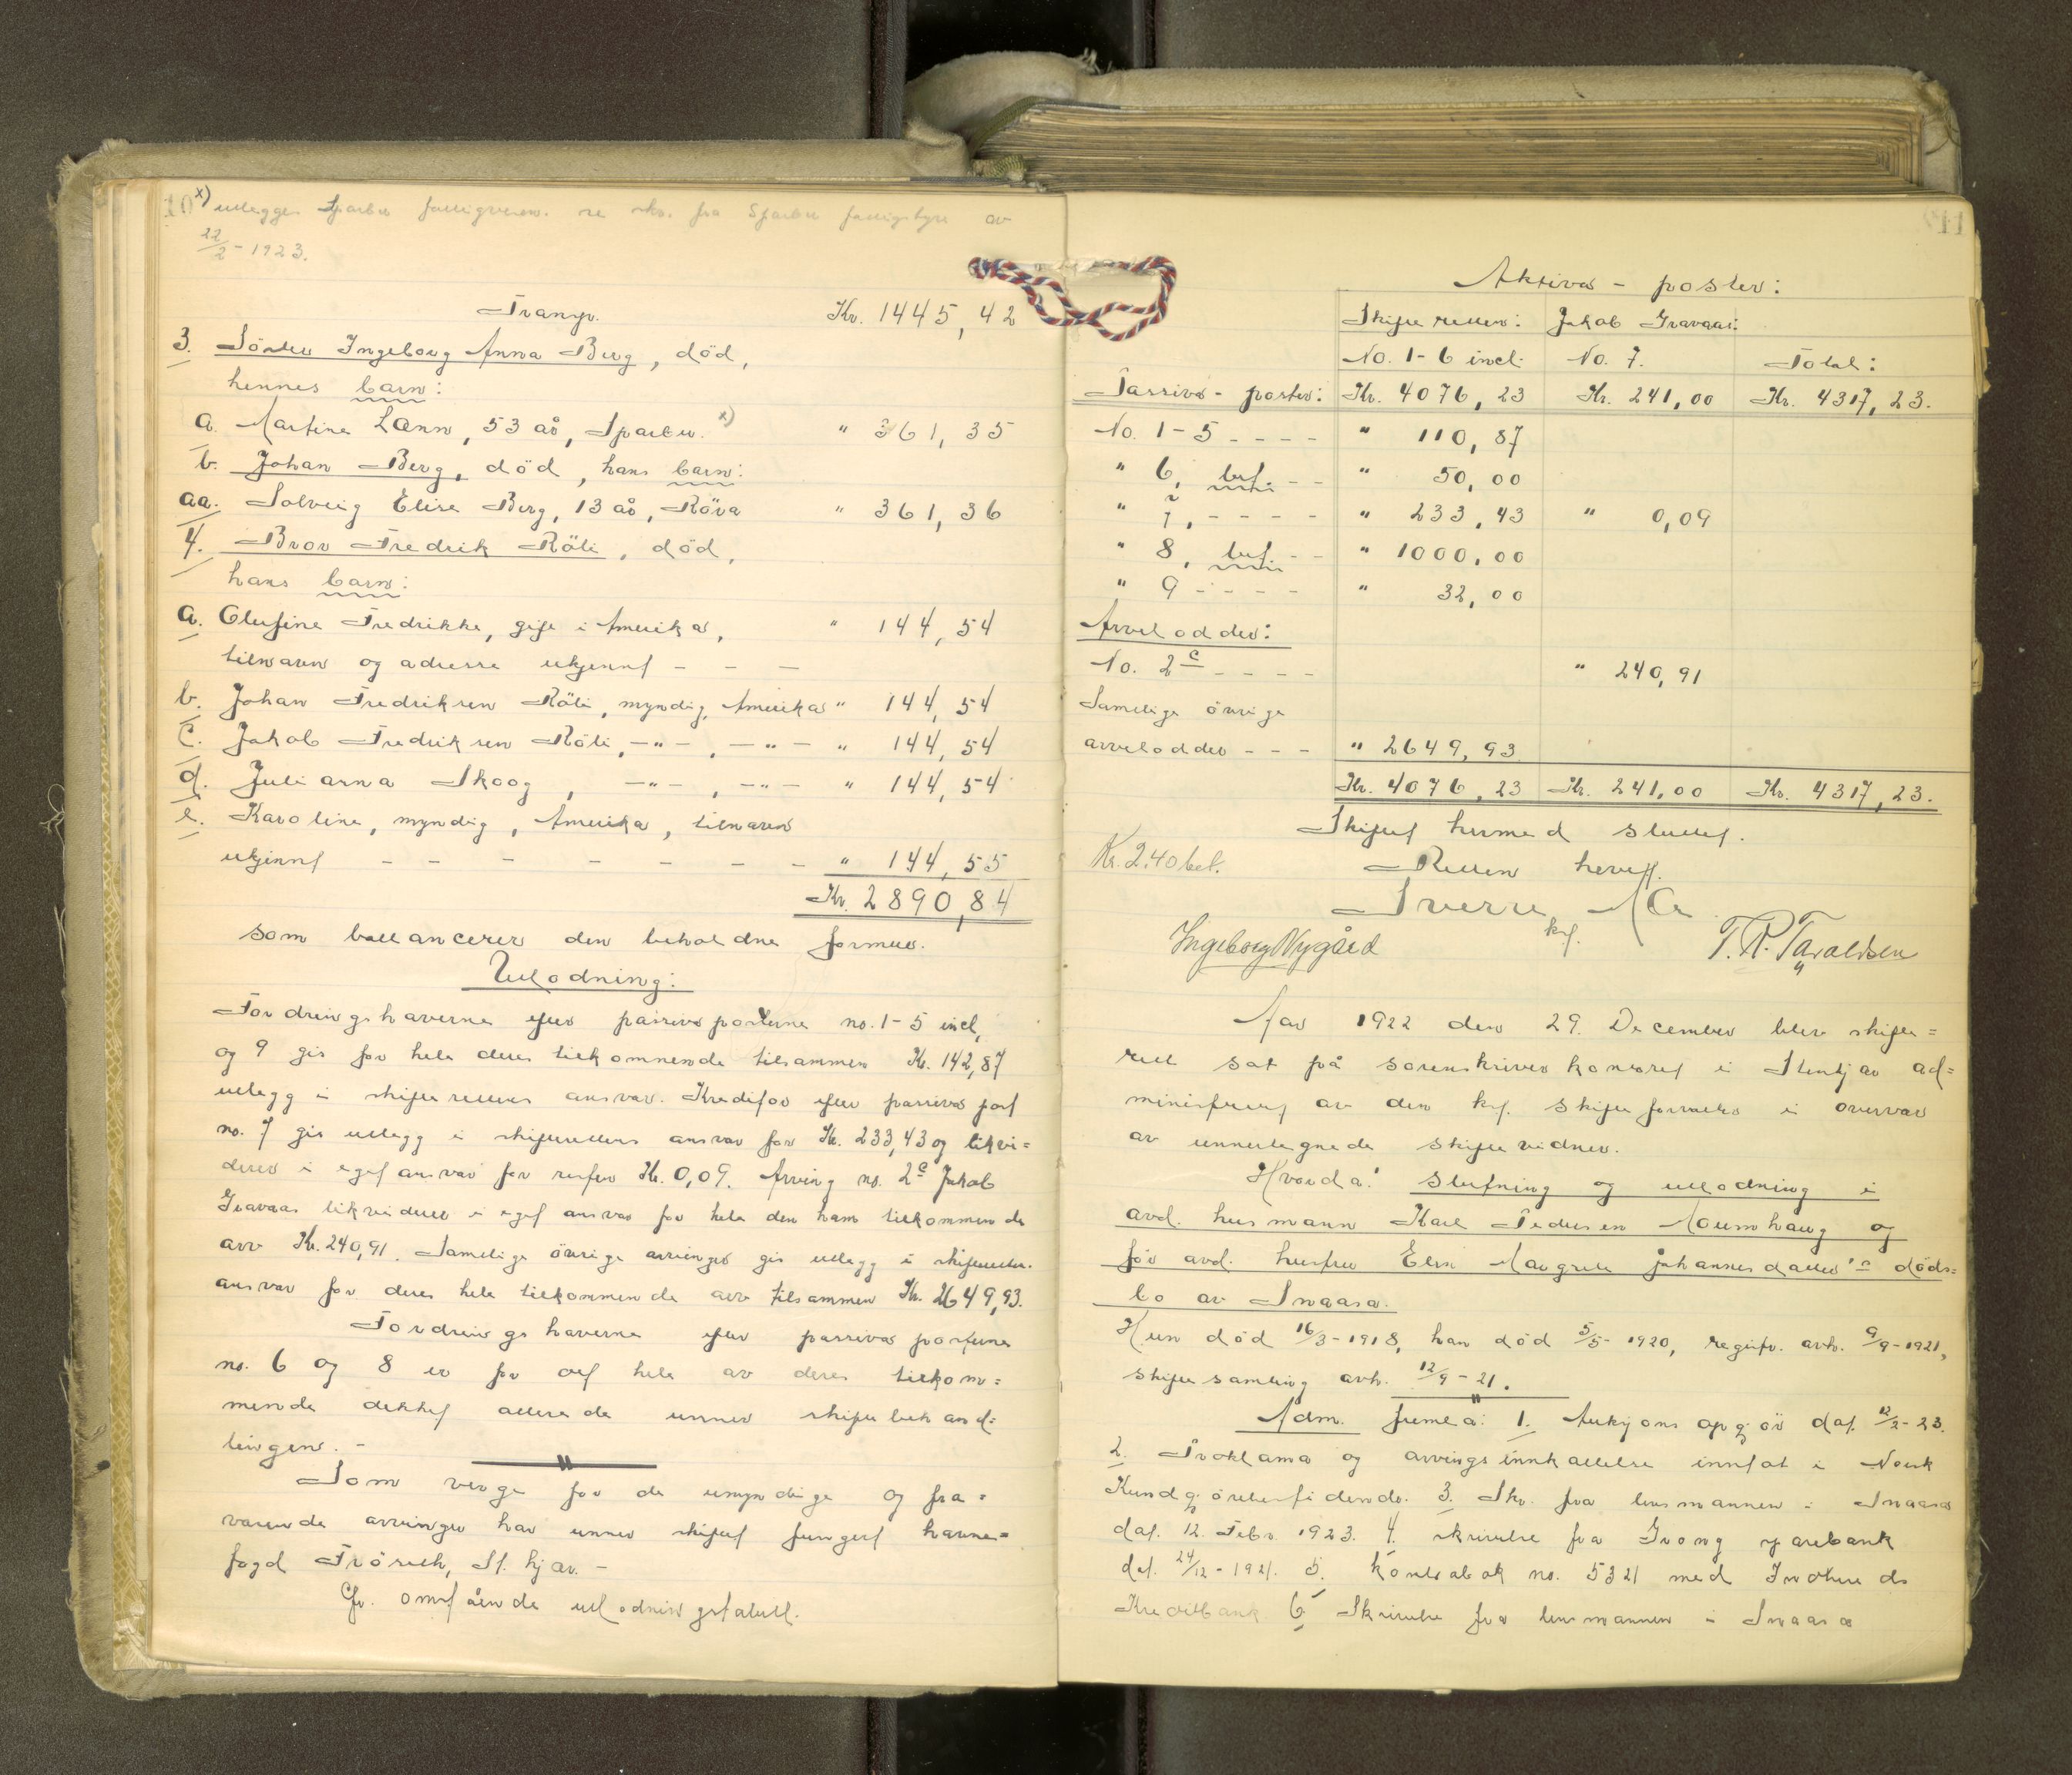 x) utlegges Sparbu fattigvesen. se skr. fra Sparbu fattigstyre av
22/2 - 1923.
Transp. Kr. 1445,42
3. Söster Ingeborg Anna Berg, död,
hennes barn:
a. Martine Lænn, 53 år, Sparbu. x) " 361,35
b. Johan Berg, död, hans barn:
aa. Solveig Elise Berg, 13 år, Röra " 361,36
4. Bror Fredrik Röli, död,
hans barn:
a. Olufine Fredrikke, gift i Amerika, " 144,54
tilnavn og adresse ukjennt - - -
b. Johan Fredriksen Röli, myndig, Amerika " 144,54
c. Jakob Fredriksen Röli, -"-, -"- " 144,54
d. Julianna Skoog, -"-, -"- " 144,54
e. Karoline, myndig, Amerika, tilnavn
ukjennt - - - - - - " 144,55
Kr. 2890,84
som ballancerer den beholdne formue.
Utlodning:
Fordringshaverne efter passivaposterne no. 1-5 incl,
og 9 gis for hele deres tilkommende tilsammen Kr. 142,87
utlegg i skifterettens ansvar. Kreditor efter passiva post
no. 7 gis utlegg i skifterettens ansvar for Kr. 233,43 og likvi=
derer i eget ansvar for resten Kr. 0,09. Arving no. 2c Jakob
Gravaas likviderer i eget ansvar for hele den ham tilkommende
arv Kr. 240,91. Samtlige övrige arvinger gis utlegg i skifterettens
ansvar for deres hele tilkommende arv tilsammen Kr. 2649,93.
Fordringshaverne efter passiva posterne
no. 6 og 8 er for det hele av deres tilkom=
mende dekket allerede unner skiftebehand=
lingen. -
Som verge for de umyndige og fra=
værende arvinger har unner skiftet fungert havne=
fogd Fröseth, St. hjær. -
Cfr. omstående utlodningstabell.
Aktiva - poster:
Skifteretten: Jakob Gravaas:
No. 1-6 incl. No. 7. Total:
Passiva - poster: Kr. 4076,23 Kr. 241,00 Kr. 4317,23.
No. 1-5 - - - - " 110,87
" 6, bet. - - " 50,00
" 7, - - - - " 233,43 " 0,09
" 8, bet. - - " 1000,00
" 9 - - - - " 32,00
Arvelodder:
No. 2c - - - - " 240,91
Samtlige övrige
arvelodder - - - " 2649,93
Kr. 4076,23 Kr. 241,00 Kr. 4317,23.
Skiftet hermed sluttet.
Kr. 2.40 bet. Retten hevet.
Sverre
kst.
Ingeborg Nygård T. R. Taraldsen
Aar 1922 den 29. December blev skifte=
rett sat på sorenskriverkontoret i Stenkjær ad=
ministrert av den kst. skifteforvalter i overvær
av unnertegnede skiftevidner.
Hvorda: slutning og utlodning i
avd. husmann Karl Pedersen Moumhaug og
för avd. hustru Elen Margrete Johannesdatter's döds=
bo av Snaasa.
Hun död 16/3-1918, han död 5/5-1920, registr. avh. 9/9-1921,
skiftesamling avh. 12/9-21.
Adm. fremla: 1. Auksjonsopgjör dat. 12/2-23.
2. Proklama og arvingsinnkallelse inntat i Norsk
Kundgjörelsestidende. 3. Skr. fra lensmannen i Snaasa
dat. 12. Febr. 1923. 4. skrivelse fra Grong sparebank
dat. 24/12-1921. 5. kontrabok no. 5321 med Innherreds
Kreditbank 6. Skrivelse fra lensmannen i Snaasa